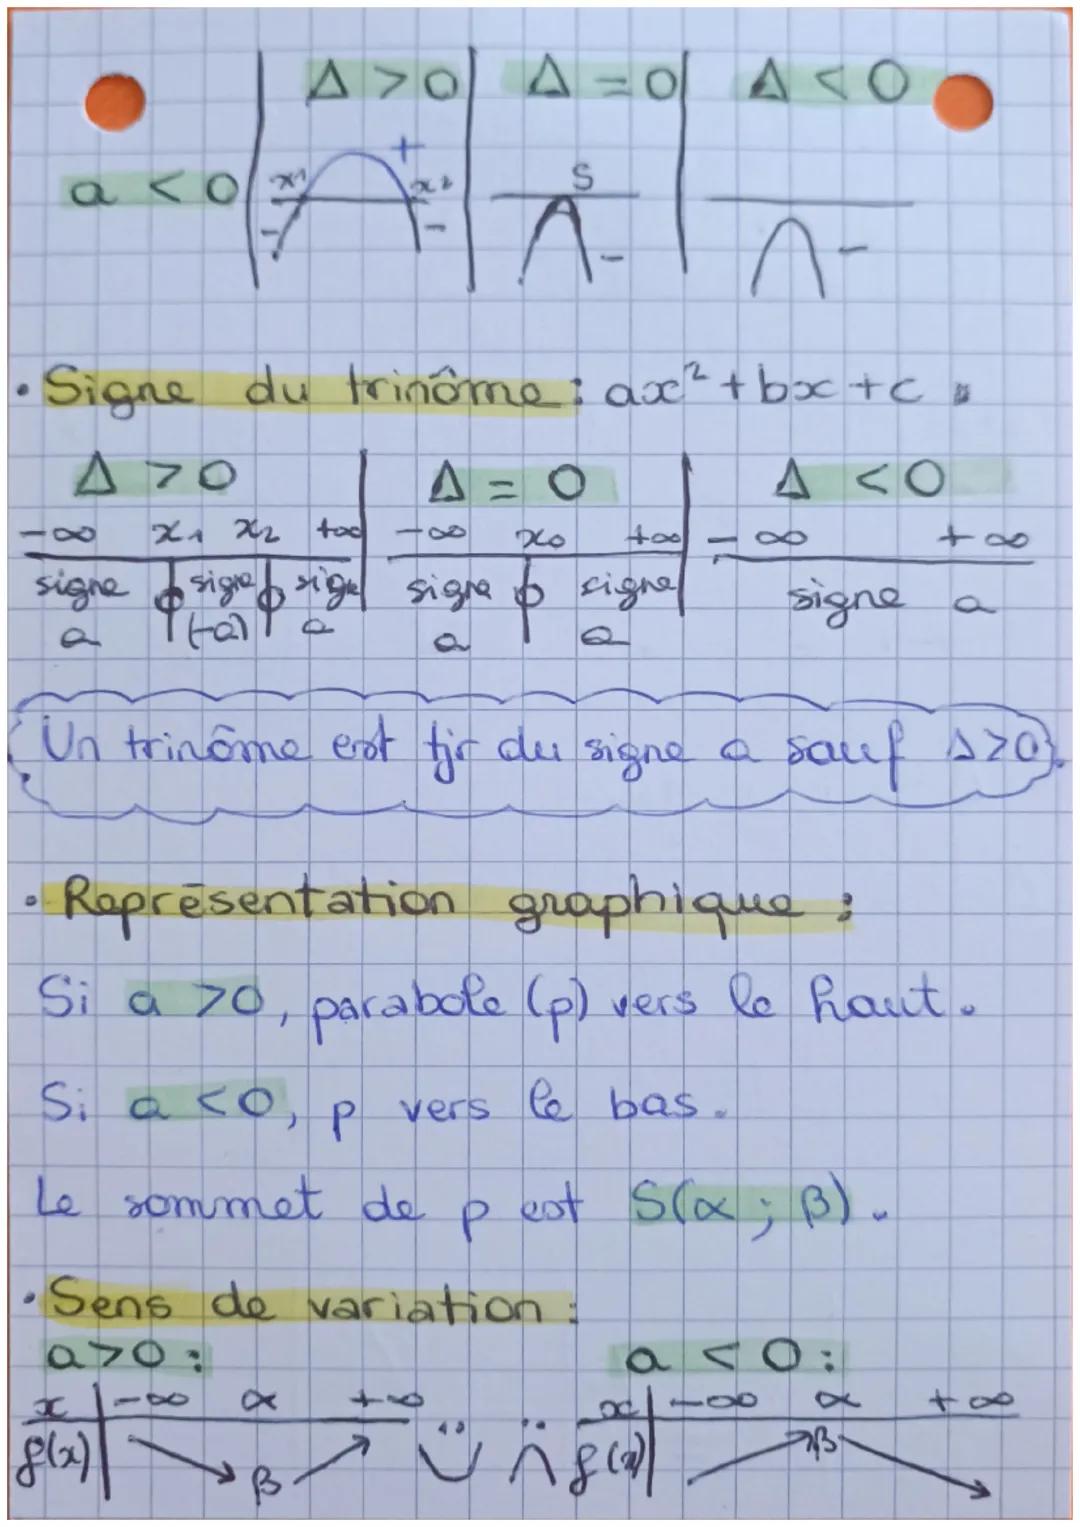 Δ > 0 Δ = 0 Δ < 0
a < 0 x1 + x2 S
- - - -
• Signe du trinôme : ax² + bx + c
Δ > 0 Δ = 0 Δ < 0
-∞ x1 x2 +∞ -∞ x0 +∞ -∞ +∞
signe signe signe signe signe signe a
a (-a) a a a
Un trinôme est tjr du signe a sauf Δ>0.
• Représentation graphique :
Si a >0, parabole (p) vers le haut.
Si a <0, p vers le bas.
Le sommet de p est S(α ; β).
• Sens de variation :
a>0 : a < 0 :
x -∞ α +∞ x -∞ α +∞
f(x) β f(x) β